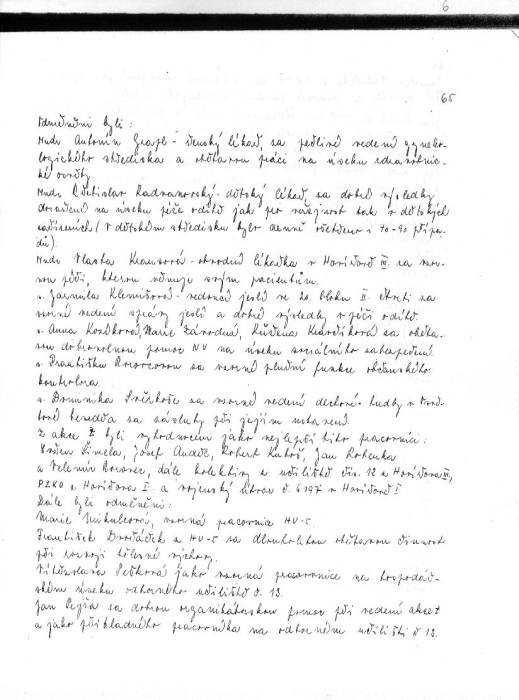 6
65
Odměněni byli:
Mudr Antonín Grapl - ženský lékař, za pečlivé vedení gyneko-
logického střediska a obětavou práci na úseku zdravotnic-
ké osvěty.
Mudr Vlastislav Radvanovský - dětský lékař, za dobré výsledky
dosažené na úseku péče o dítě jak pro veřejnost tak v dětských
zařízeních (v dětském středisku bylo denně ošetřeno i 70-90 přípa-
dů).
Mudr Vlasta Krausová - obvodní lékařka v Havířově III. za vzor-
nou péči, kterou věnuje svým pacientům.
s. Jarmila Klemišová - vedoucí jeslí ve 20. bloku II. čtvrti za
vzorné vedení správy jeslí a dobré výsledky v péči o dítě.
s. Anna Koržková, Marie Závodná, Růžena Kudrliková za oběta-
vou dobrovolnou pomoc NV na úseku sociálního zabezpečení
s. Františku za vzorné plnění funkce občanského
kontrolora.
s. Dominika za vzorné vedení dechové hudby v
besedě a za zásluhy při jejím ustavení.
Z akce Z byli vyhodnoceni jako nejlepší tito pracovníci:
Šimela, Josef Anděl, Robert Kutoš, Jan Rohenka
a Velemír dále kolektivy z učiliště čís. 12 z Havířova III,
PZKO z Havířova I. a vojenský útvar č. 6197 v Havířově I
Dále byli odměněni:
Marie Mikulcová, vzorná pracovnice HV-5.
František z HV-5 za dlouholetou obětavou činnost
při rozvoji tělesné výchovy.
Vítězslava Pešková jako vzorná pracovnice na hospodář-
ském úseku odborného učiliště č. 13.
Jan Pejša za dobrou organizátorskou pomoc při vedení akcí
a jako příkladného pracovníka na odborném učilišti č 13.